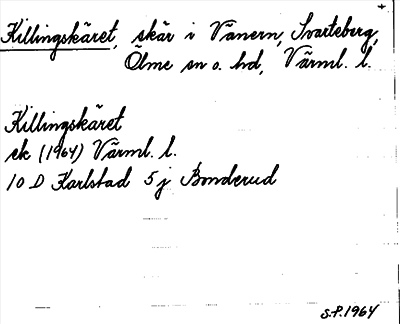 Killingskäret, skär i Vänern, Svarteberg,
Ölme sn o. hd, Värml. l.
Killingskäret
ek (1964) Värml. l.
10 D Karlstad 5 j Bonderud
S.P. 1964